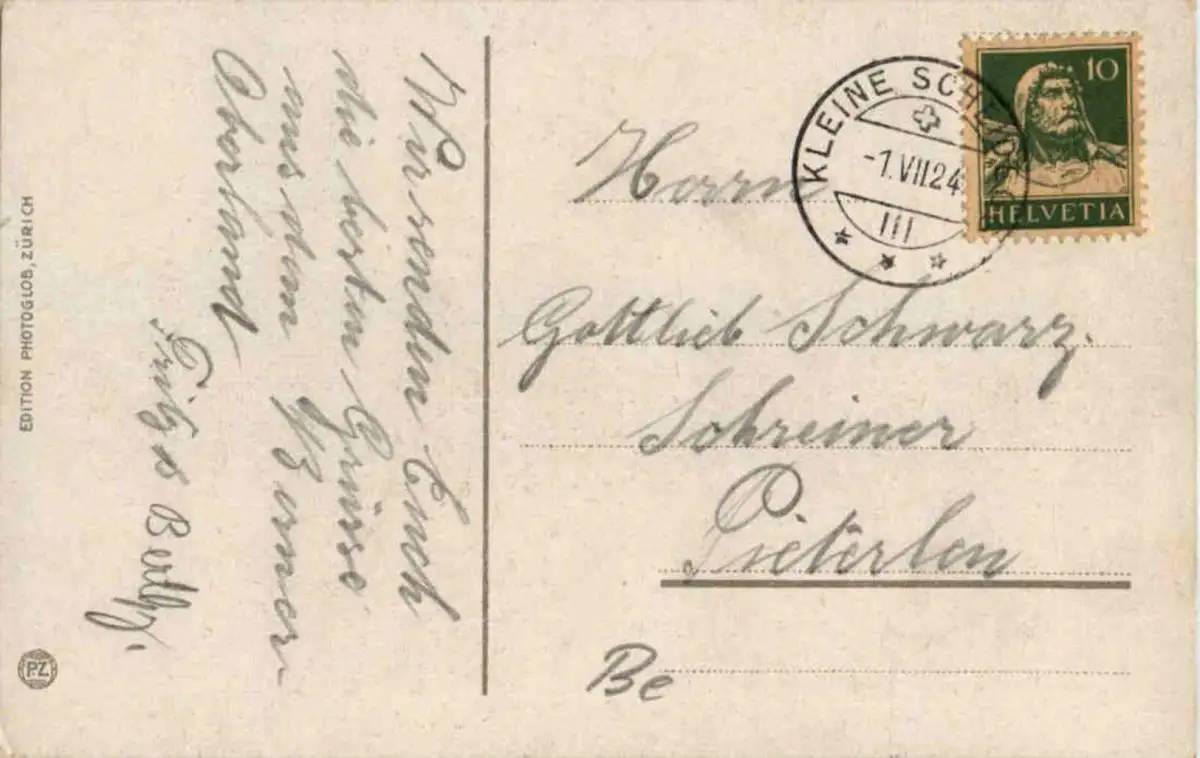 Wir senden Euch
die besten Grüsse
aus dem Berner-
Oberland
EDITION PHOTOGLOB, ZÜRICH
P.Z.
KLEINE
-1.VII.24
III
10
HELVETIA
Herrn
Gottlieb Schwarz.
Schreiner
Pieterlen
Be